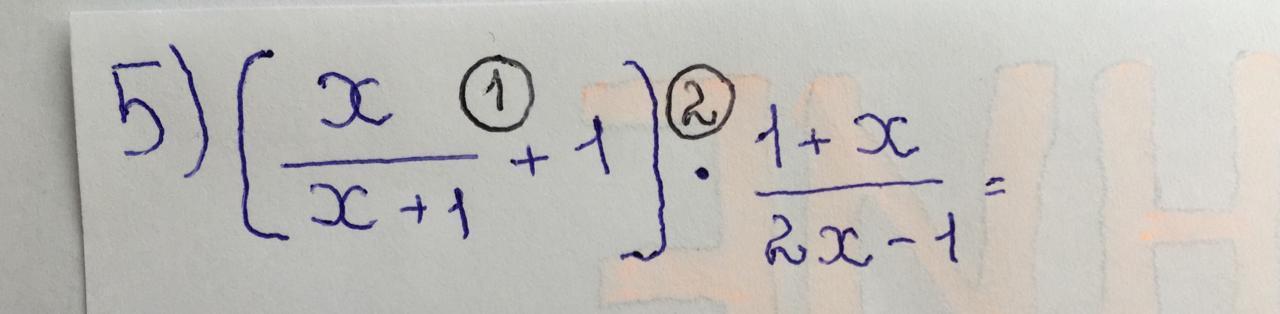 5) [x/(x+1) ① + 1] ② · (1+x)/(2x-1) =